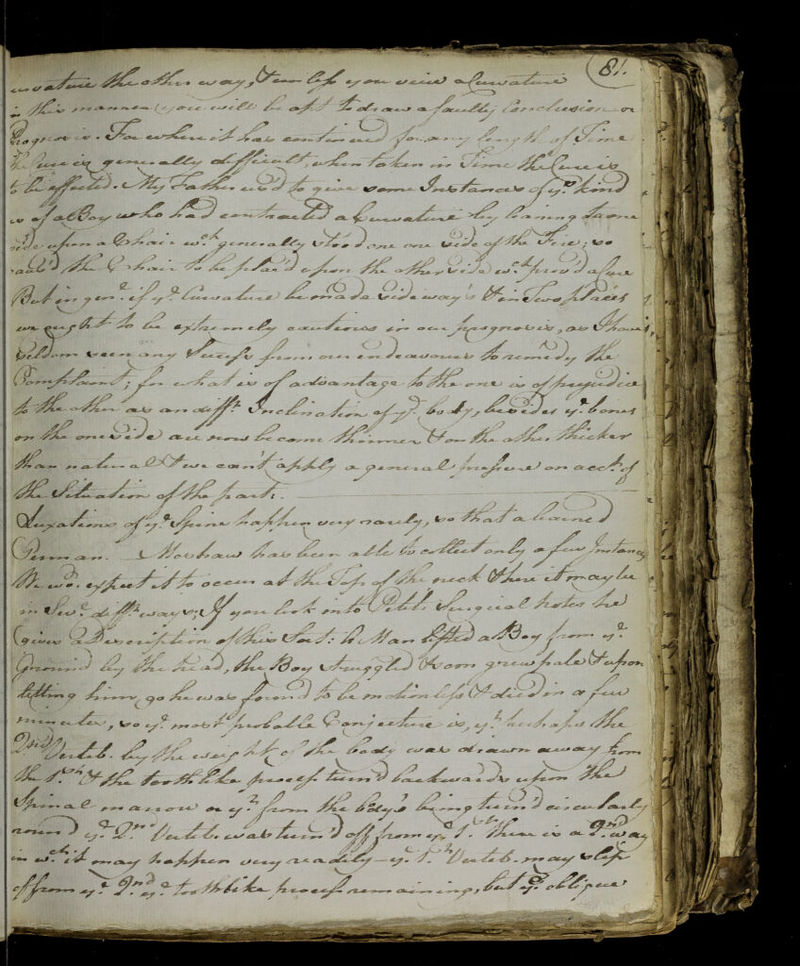 81.
curvature the other way, & unless you view a Curvature
in this manner you will be apt to draw a faulty Conclusion or
Prognosis. For where it has continued for any length of Time
the Cure is generally difficult, when taken in Time the Cure is
to be effected. My Father us'd to give some Instances of ys. kind
as of a Boy who had contracted a Curvature by leaning to one
side upon a Chair wch. generally stood one one side of the Fire; so
caus'd the Chair to be plac'd upon the other side wch. prov'd a Cure
But in genl. if ye. Curvature be made sideway's & in Two places
we ought to be extremely cautious in our prognosis, as I have
seldom seen any Success from our endeavours to remedy the
Complaint; for what is of advantage to the one is of prejudice
to the other as an difft. Inclination of ye. body, besides ye. bones
on the one side are now become thinner & on the other thicker
than natural & we can't apply a general pressure on acct. of
the Situation of the part.
Luxations of ye. Spine happen very rarely, so that a learned
German has been able to collect only a few Instances
We wd. expect it to occur at the Top of the neck & here it may be
in Sevl. difft. ways; If you look into Petits Surgical notes he
gives a Description of this Sort: A Man lifted a Boy from ye.
ground by the head, the Boy struggled & soon grew pale & upon
letting him go he was found to be motionless & died in a few
minutes, so ye. most probable Conjecture is, yt. perhaps the
2nd. Verteb. by the weight of the body was drawn away from
the 1st. & the tooth like process turn'd backwards upon the
Spinal marrow or yt. from the body's being turn'd circularly
round ye. 2nd. Verteb. was turn'd off from ye. 1st. there is a 2nd. way
in wch. it may happen very readily - ye. 1st. Verteb. may slip
off from ye. 2nd. ye. tooth like process remaining, but ye. oblique